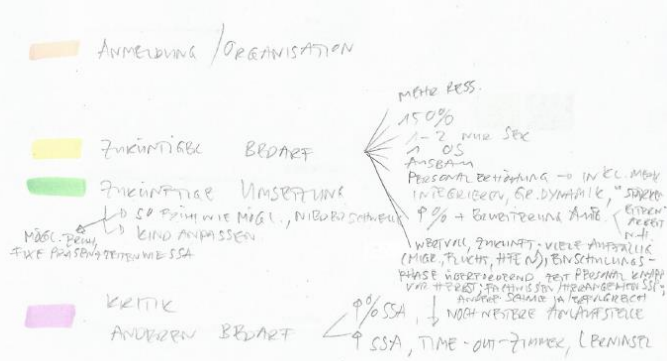 ANMELDUNG / ORGANISATION
MEHR RESS.
150%
1-2 NUR SEK
1 OS
AUSBAU
ZUKÜNFTIGER BEDARF
PERSONALERHÖHUNG → IN KL. MEHR
INTEGRIEREN, GR. DYNAMIK, "STÄRKE
↑% + ERWEITERUNG ANG. < ELTERN
ARBEIT
ZUKÜNFTIGE UMSETZUNG
↳ SO FRÜH WIE MÖGL., NIEDERSCHWELLIG
↳ KIND ANPASSEN
MÖGL. FRÜH,
FIXE PRÄSENZZEITEN WIE SSA
WERTVOLL, ZUKUNFT - VIELE AUFFÄLLIG
(MIGR., FLUCHT, HFEN), EINSCHULUNGS-
PHASE ÜBERFORDERND ZEIT PERSONAL KNAPP
VOR HERBST, FACHWISSEN/HERANGEHENSW.,
ANDERE SCHULE JA ERFOLGREICH
↓ NOCH WEITERE ANLAUFSTELLE
KRITIK
ANDEREN BEDARF
↑% SSA
↑ SSA, TIME-OUT-ZIMMER, LERNINSEL